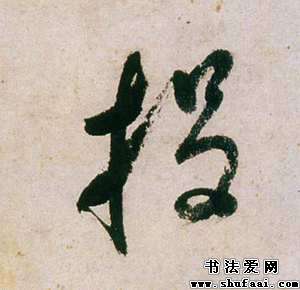 投
书法爱网
www.shufaai.com